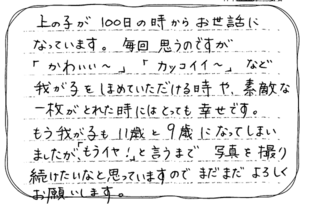 上の子が100日の時からお世話に
なっています。毎回思うのですが
「かわいい～」「カッコイイ～」など
我が子をほめていただける時や、素敵な
一枚がとれた時にはとっても幸せです。
もう我が子も11歳と9歳になってしまい
ましたが、「もうイヤ!」と言うまで 写真を撮り
続けたいなと思っていますので まだまだ よろしく
お願いします。